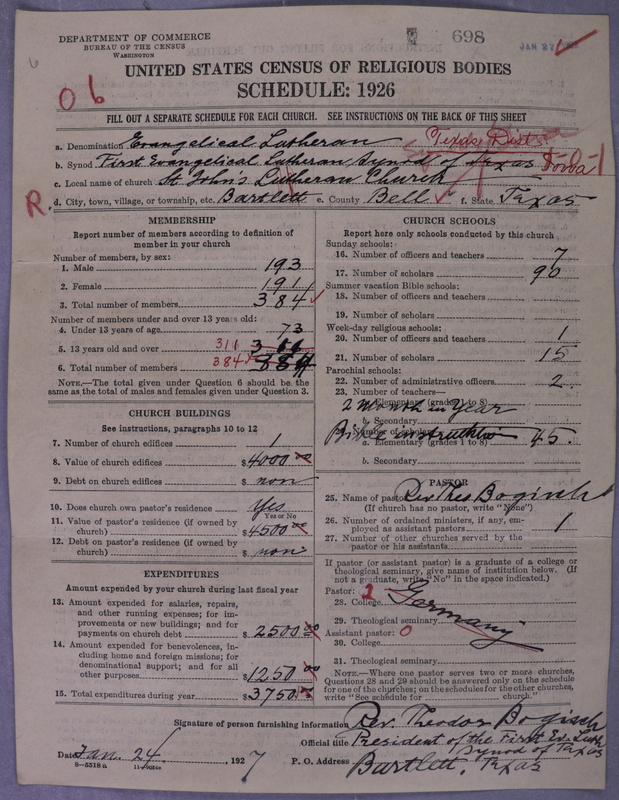 DEPARTMENT OF COMMERCE
BUREAU OF THE CENSUS
WASHINGTON
698
JAN 27
UNITED STATES CENSUS OF RELIGIOUS BODIES
SCHEDULE: 1926
O 6
FILL OUT A SEPARATE SCHEDULE FOR EACH CHURCH. SEE INSTRUCTIONS ON THE BACK OF THIS SHEET
a. Denomination Evangelical Lutheran Texas Dist
b. Synod First Evangelical Lutheran Synod of Texas Iowa-1
c. Local name of church St John's Lutheran Church
R. d. City, town, village, or township, etc. Bartlett e. County Bell f. State Texas
MEMBERSHIP
Report number of members according to definition of
member in your church
Number of members, by sex:
1. Male 193
2. Female 191
3. Total number of members 384
Number of members under and over 13 years old:
4. Under 13 years of age 73
5. 13 years old and over 311 311
6. Total number of members 384 384
NOTE.—The total given under Question 6 should be the
same as the total of males and females given under Question 3.
CHURCH BUILDINGS
See instructions, paragraphs 10 to 12
7. Number of church edifices 1
8. Value of church edifices $4000.00
9. Debt on church edifices $ non
10. Does church own pastor's residence? Yes
Yes or No
11. Value of pastor's residence (if owned by
church) $4500.00
12. Debt on pastor's residence (if owned by
church) $ non
EXPENDITURES
Amount expended by your church during last fiscal year
13. Amount expended for salaries, repairs,
and other running expenses; for im-
provements or new buildings; and for
payments on church debt $ 2500.00
14. Amount expended for benevolences, in-
cluding home and foreign missions; for
denominational support; and for all
other purposes $1250.00
15. Total expenditures during year $3750.
CHURCH SCHOOLS
Report here only schools conducted by this church
Sunday schools:
16. Number of officers and teachers 7
17. Number of scholars 90
Summer vacation Bible schools:
18. Number of officers and teachers
19. Number of scholars
Week-day religious schools:
20. Number of officers and teachers 1
21. Number of scholars 15
Parochial schools:
22. Number of administrative officers 2
23. Number of teachers—
a. Elementary (grades 1 to 8)
2 Month in Year
b. Secondary
24. Number of scholars—
Bible instruction
a. Elementary (grades 1 to 8) 45.
b. Secondary
PASTOR
25. Name of pastor Rev. Theo Bogisch
(If church has no pastor, write "None")
26. Number of ordained ministers, if any, em-
ployed as assistant pastors 1
27. Number of other churches served by the
pastor or his assistants
If pastor (or assistant pastor) is a graduate of a college or
theological seminary, give name of institution below. (If
not a graduate, write "No" in the space indicated.)
Pastor: 2
28. College Germany
29. Theological seminary
Assistant pastor: 0
30. College
31. Theological seminary
NOTE.—Where one pastor serves two or more churches,
Questions 28 and 29 should be answered only on the schedule
for one of the churches; on the schedules for the other churches,
write "See schedule for church."
Signature of person furnishing information Rev. Theodor Bogisch
Official title President of the First Ev. Luth
Synod of Texas
Date Jan. 24, 1927 P. O. Address Bartlett, Texas
8—5518 a